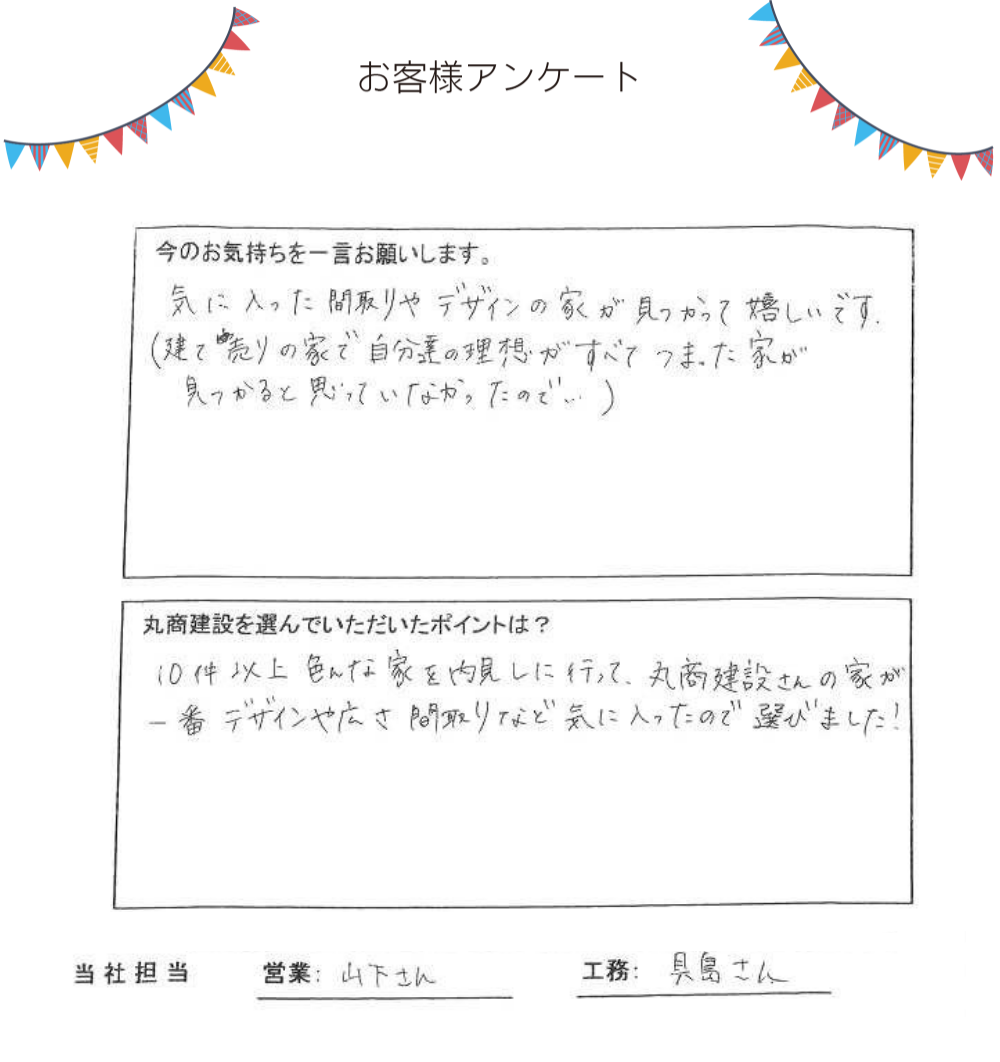 お客様アンケート
今のお気持ちを一言お願いします。
気に入った間取りやデザインの家が見つかって嬉しいです.
(建て売りの家で自分達の理想がすべてつまった家が
見つかると思っていなかったので…)
丸商建設を選んでいただいたポイントは？
10件以上色んな家を内見しに行って、丸商建設さんの家が
一番デザインや広さ間取りなど気に入ったので選びました!
当社担当 営業: 山下さん 工務: 具島さん